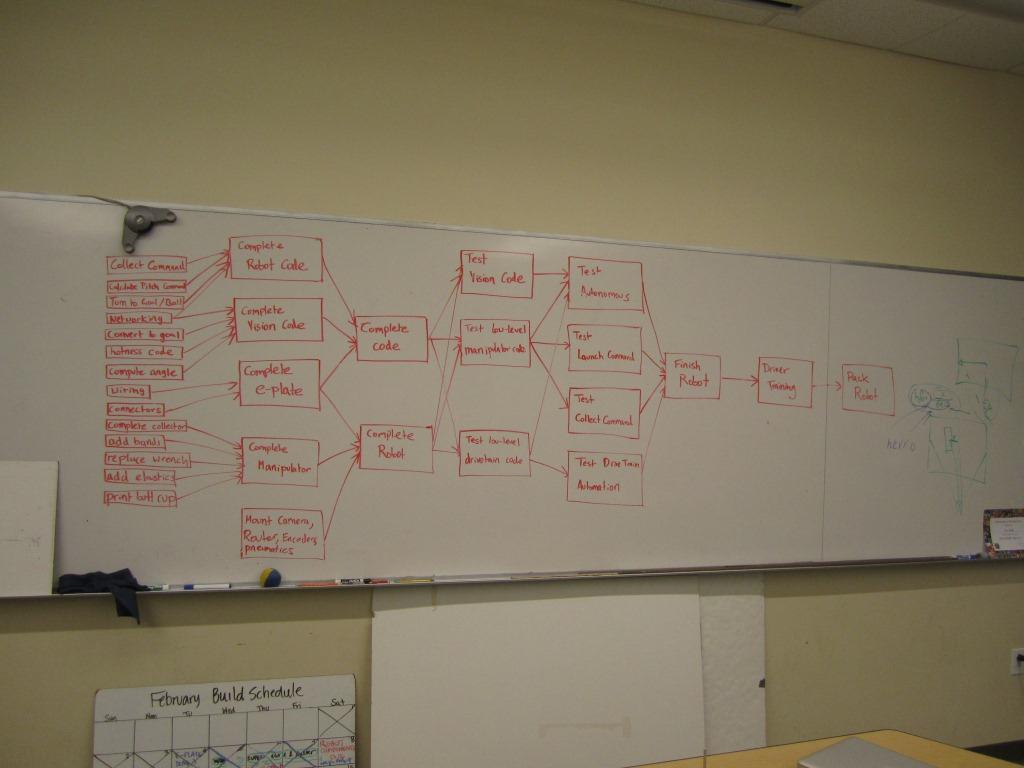 Collect Command
Calculate Pitch Command
Turn to Goal/Ball
Networking
Convert to goal
hotness code
Compute angle
Wiring
Connectors
Complete collector
add bands
replace wrench
add elastics
print ball cup
Complete
Robot Code
Complete
Vision Code
Complete
e-plate
Complete
Manipulator
Mount Camera,
Router, Encoders
pneumatics
Complete
code
Complete
Robot
Test
Vision Code
Test low-level
manipulator code
Test low-level
drivetrain code
Test
Autonomous
Test
Launch Command
Test
Collect Command
Test Drive Train
Automation
Finish
Robot
Driver
Training
Pack
Robot
hello
February Build Schedule
Sun Mon Tu Wed Thu Fri Sat